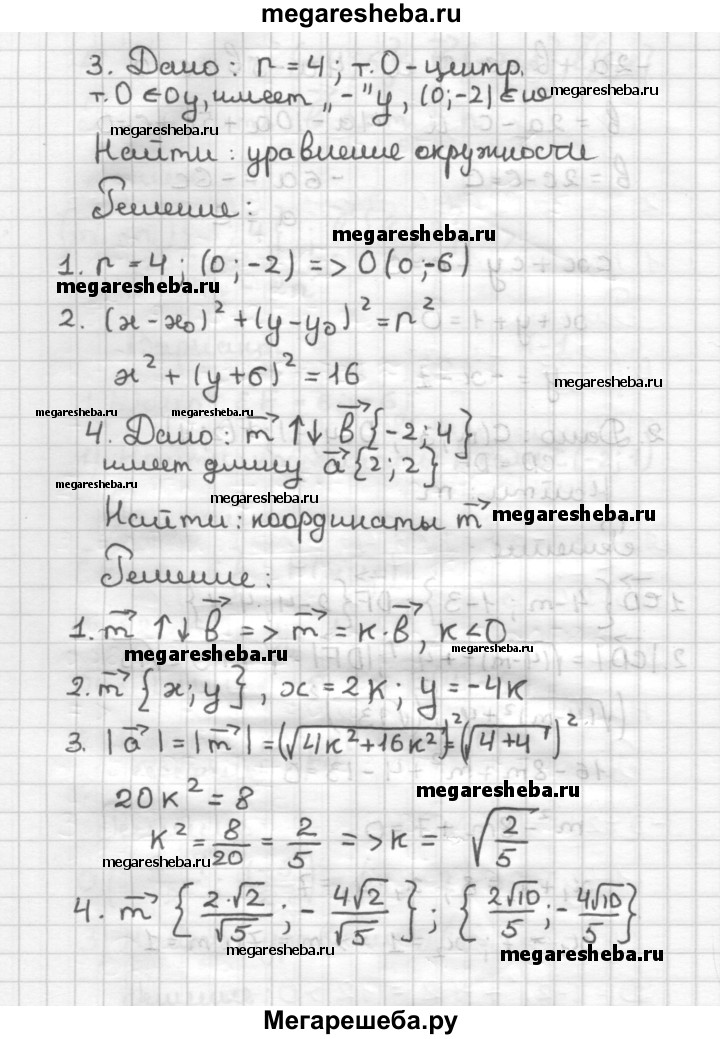 megaresheba.ru
3. Дано: r = 4; т. O - центр.
т. O ∈ Oy, имеет „-" y, (0; -2) ∈ ω
megaresheba.ru
megaresheba.ru
Найти: уравнение окружности
megaresheba.ru
Решение:
megaresheba.ru
1. r = 4; (0; -2) => O (0; -6)
megaresheba.ru
2. (x - x₀)² + (y - y₀)² = r²
x² + (y + 6)² = 16
megaresheba.ru
megaresheba.ru megaresheba.ru
4. Дано: m⃗ ↑↓ b⃗ {-2; 4}
имеет длину a⃗ {2; 2}
megaresheba.ru
megaresheba.ru
Найти: координаты m⃗
megaresheba.ru
Решение:
1. m⃗ ↑↓ b⃗ => m⃗ = k·b⃗, k < 0
megaresheba.ru
megaresheba.ru
2. m⃗ {x; y}, x = 2k; y = -4k
3. |a⃗| = |m⃗| = (√4k² + 16k²)² = (√4 + 4)²
20k² = 8
megaresheba.ru
k² = 8/20 = 2/5 => k = √2/5
megaresheba.ru
megaresheba.ru
4. m⃗ {2·√2/√5; - 4√2/√5}; {2√10/5; - 4√10/5}
megaresheba.ru
megaresheba.ru
Мегарешеба.ру